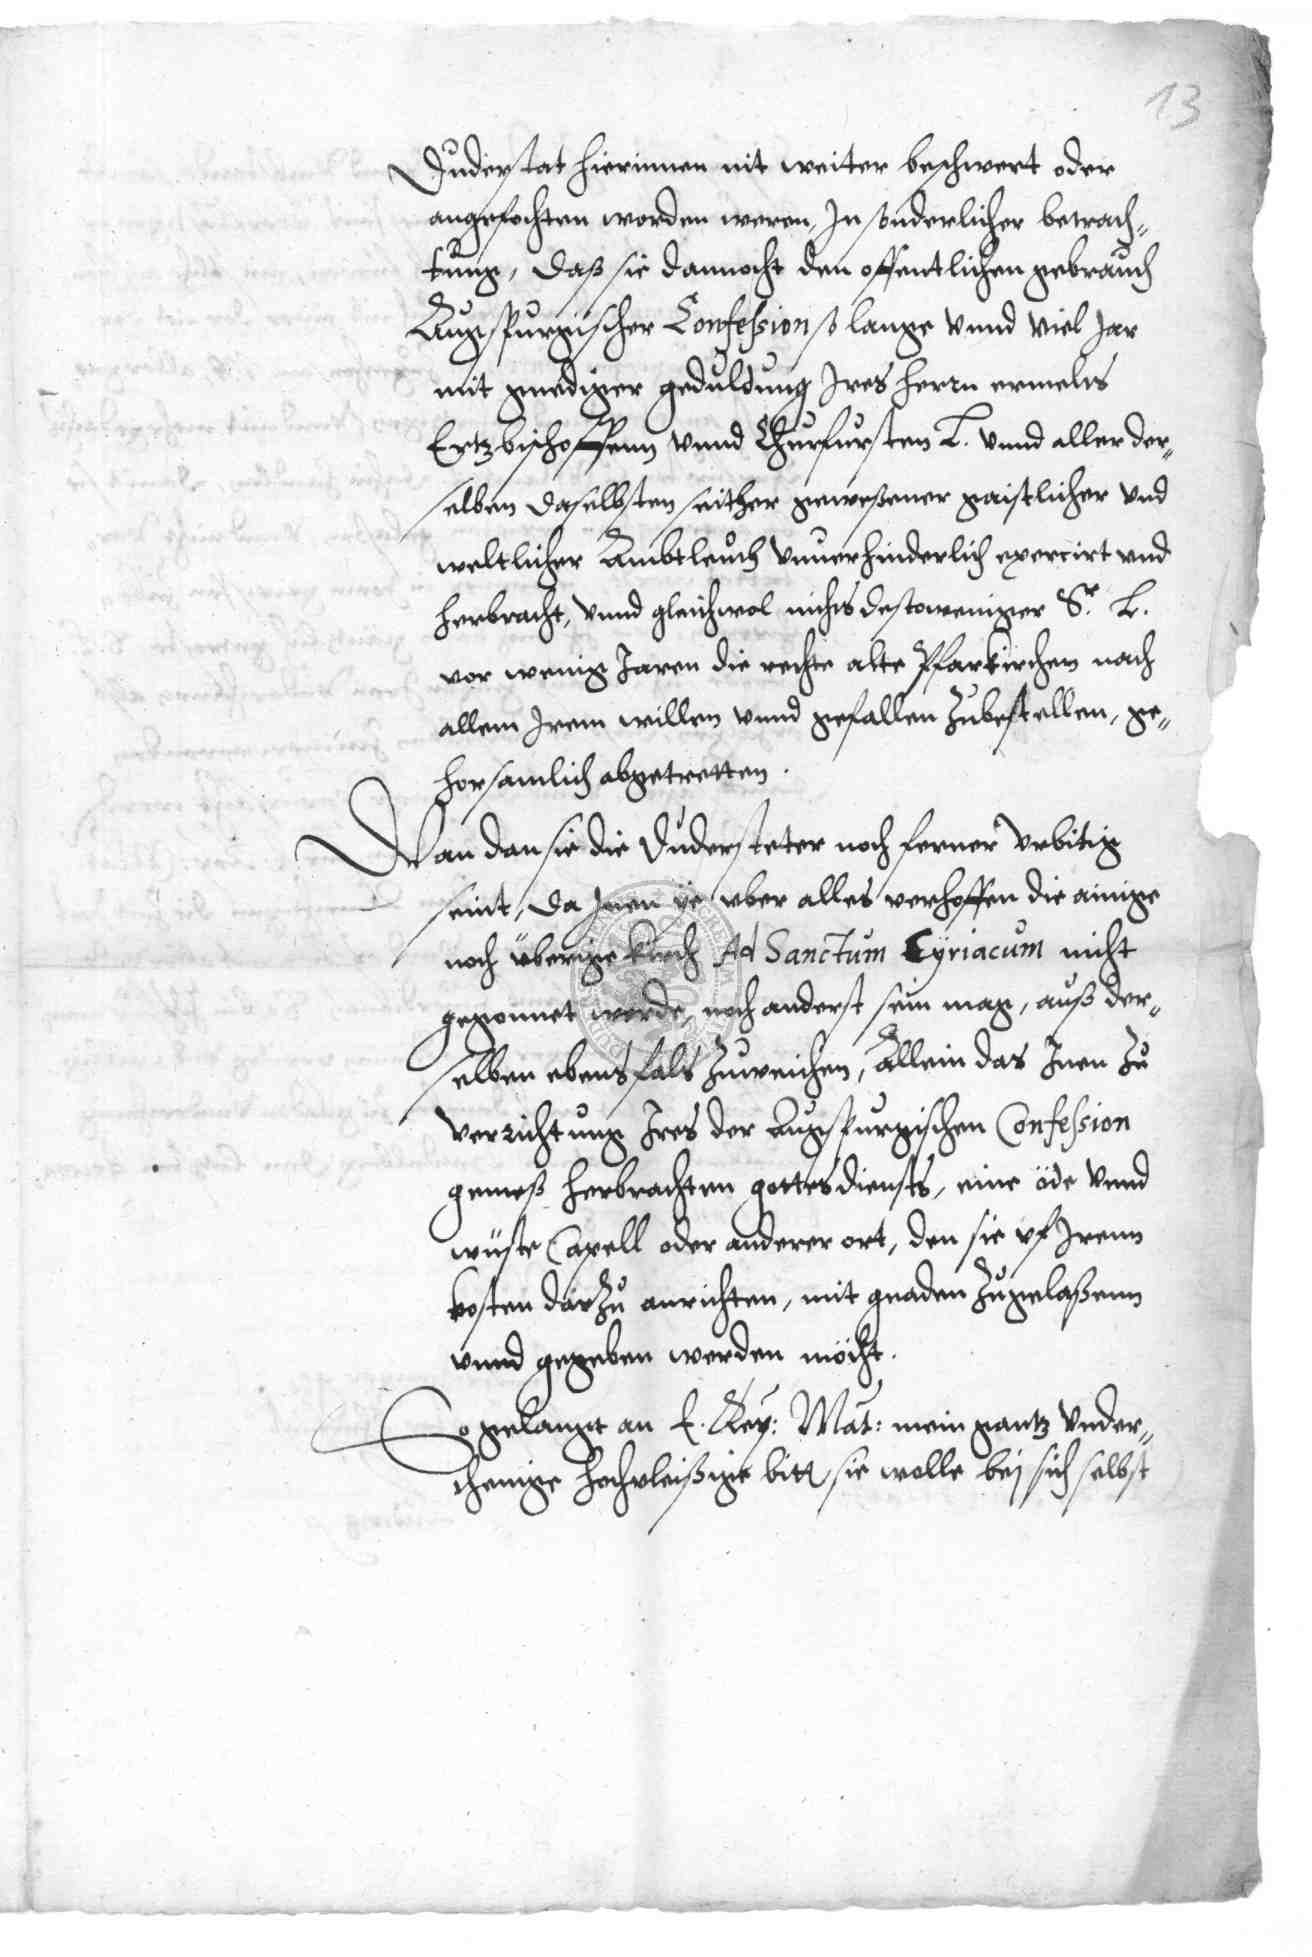 13
Duderstat hierinnen nit weiter beschwert oder
angefochten worden weren, In sonderlicher betrach-
tung, daß sie dannocht den offentlichen gebrauch
Augspurgischer Confession so lange vnnd viel Jar
mit gnediger geduldung Ires herrn ermelts
Ertzbischoffenn vnnd Churfursten L. vnnd aller der-
selben daselbsten seither geweßener gaistlicher vnd
weltlicher Ambtleuth vnuerhinderlich exercirt vnd
herbracht, vnnd gleichwol nichts destoweniger Sr. L.
vor wenig Jaren die rechte alte Pfarkirchen nach
allem Irem willen vnnd gefallen zubestellen, ge-
horsamlich abgetretten.
Wan dan sie die Dudersteter noch ferner vrbitig
seint, da Inen ÿe vber alles verhoffen die ainige
noch vberige kirch Ad Sanctum Cÿriacum nicht
gegonnet werde, noch anderst sein mag, auß der-
selben ebens fals zuweichen, Allein das Inen zu
verrichtung Ires der Augspurgischen Confession
gemeß herbrachten gottesdiensts, eine öde vnnd
wüste Capell oder anderer ort, den sie vf Irenn
kosten darzu anrichten, mit gnaden zugelaßenn
vnnd gegeben werden möcht.
So gelangt an E. Key: Mat: mein gantz vnder-
thenige hochvleißige bitt, sie wolle bei sich selbst